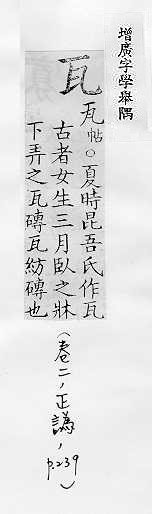 增廣字學舉隅
瓦
瓦帖○夏時昆吾氏作瓦
古者女生三月臥之牀
下弄之瓦磚瓦紡磚也
(卷二,正譌,p.239)